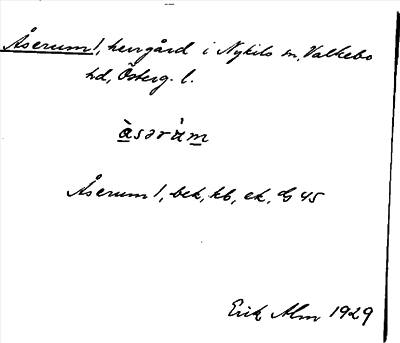 Åserum 1, herrgård i Nykils sn, Valkebo
hd, Österg. l.
àsərùm
Åserum 1, bek, kb, ek, G 45
Erik Alm 1929